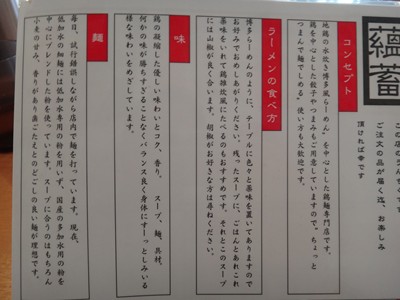 蘊蓄
この店の
ご注文の品が届く迄、お楽しみ
頂ければ幸です
コンセプト
地鶏の水炊き博多風らーめん、を中心とした鶏麺専門店です。
鶏を中心とした餃子やつまみもご用意していますので。ちょっと
つまんで麺でしめる。使い方も大歓迎です。
ラーメンの食べ方
博多らーめんのように、テーブルに色々と薬味を置いてありますので
お好みでおめしあがりください。残ったスープに、ごはんとあれこれ
薬味をいれて鶏雑炊風にたべるのもおすすめです。それとこのスープ
には山椒が良く合います。胡椒がお好きな方は尋ねください。
味
鶏の凝縮した優しい味わいとコク、香り。 スープ、麺、具材、
何かの味が勝ちすぎることなくバランス良く身体にすーっとしみいる
様な味わいをめざしています。
麺
毎日、試行錯誤しながら店内で麺を打っています。現在、
低加水の細麺には低加水専用の粉を用いず、国産の多加水用の粉を
中心にブレンドした粉を使っています。スープに合うのはもちろん
小麦の甘み、香りがあり歯ごたえとのどごしの良い麺が理想です。